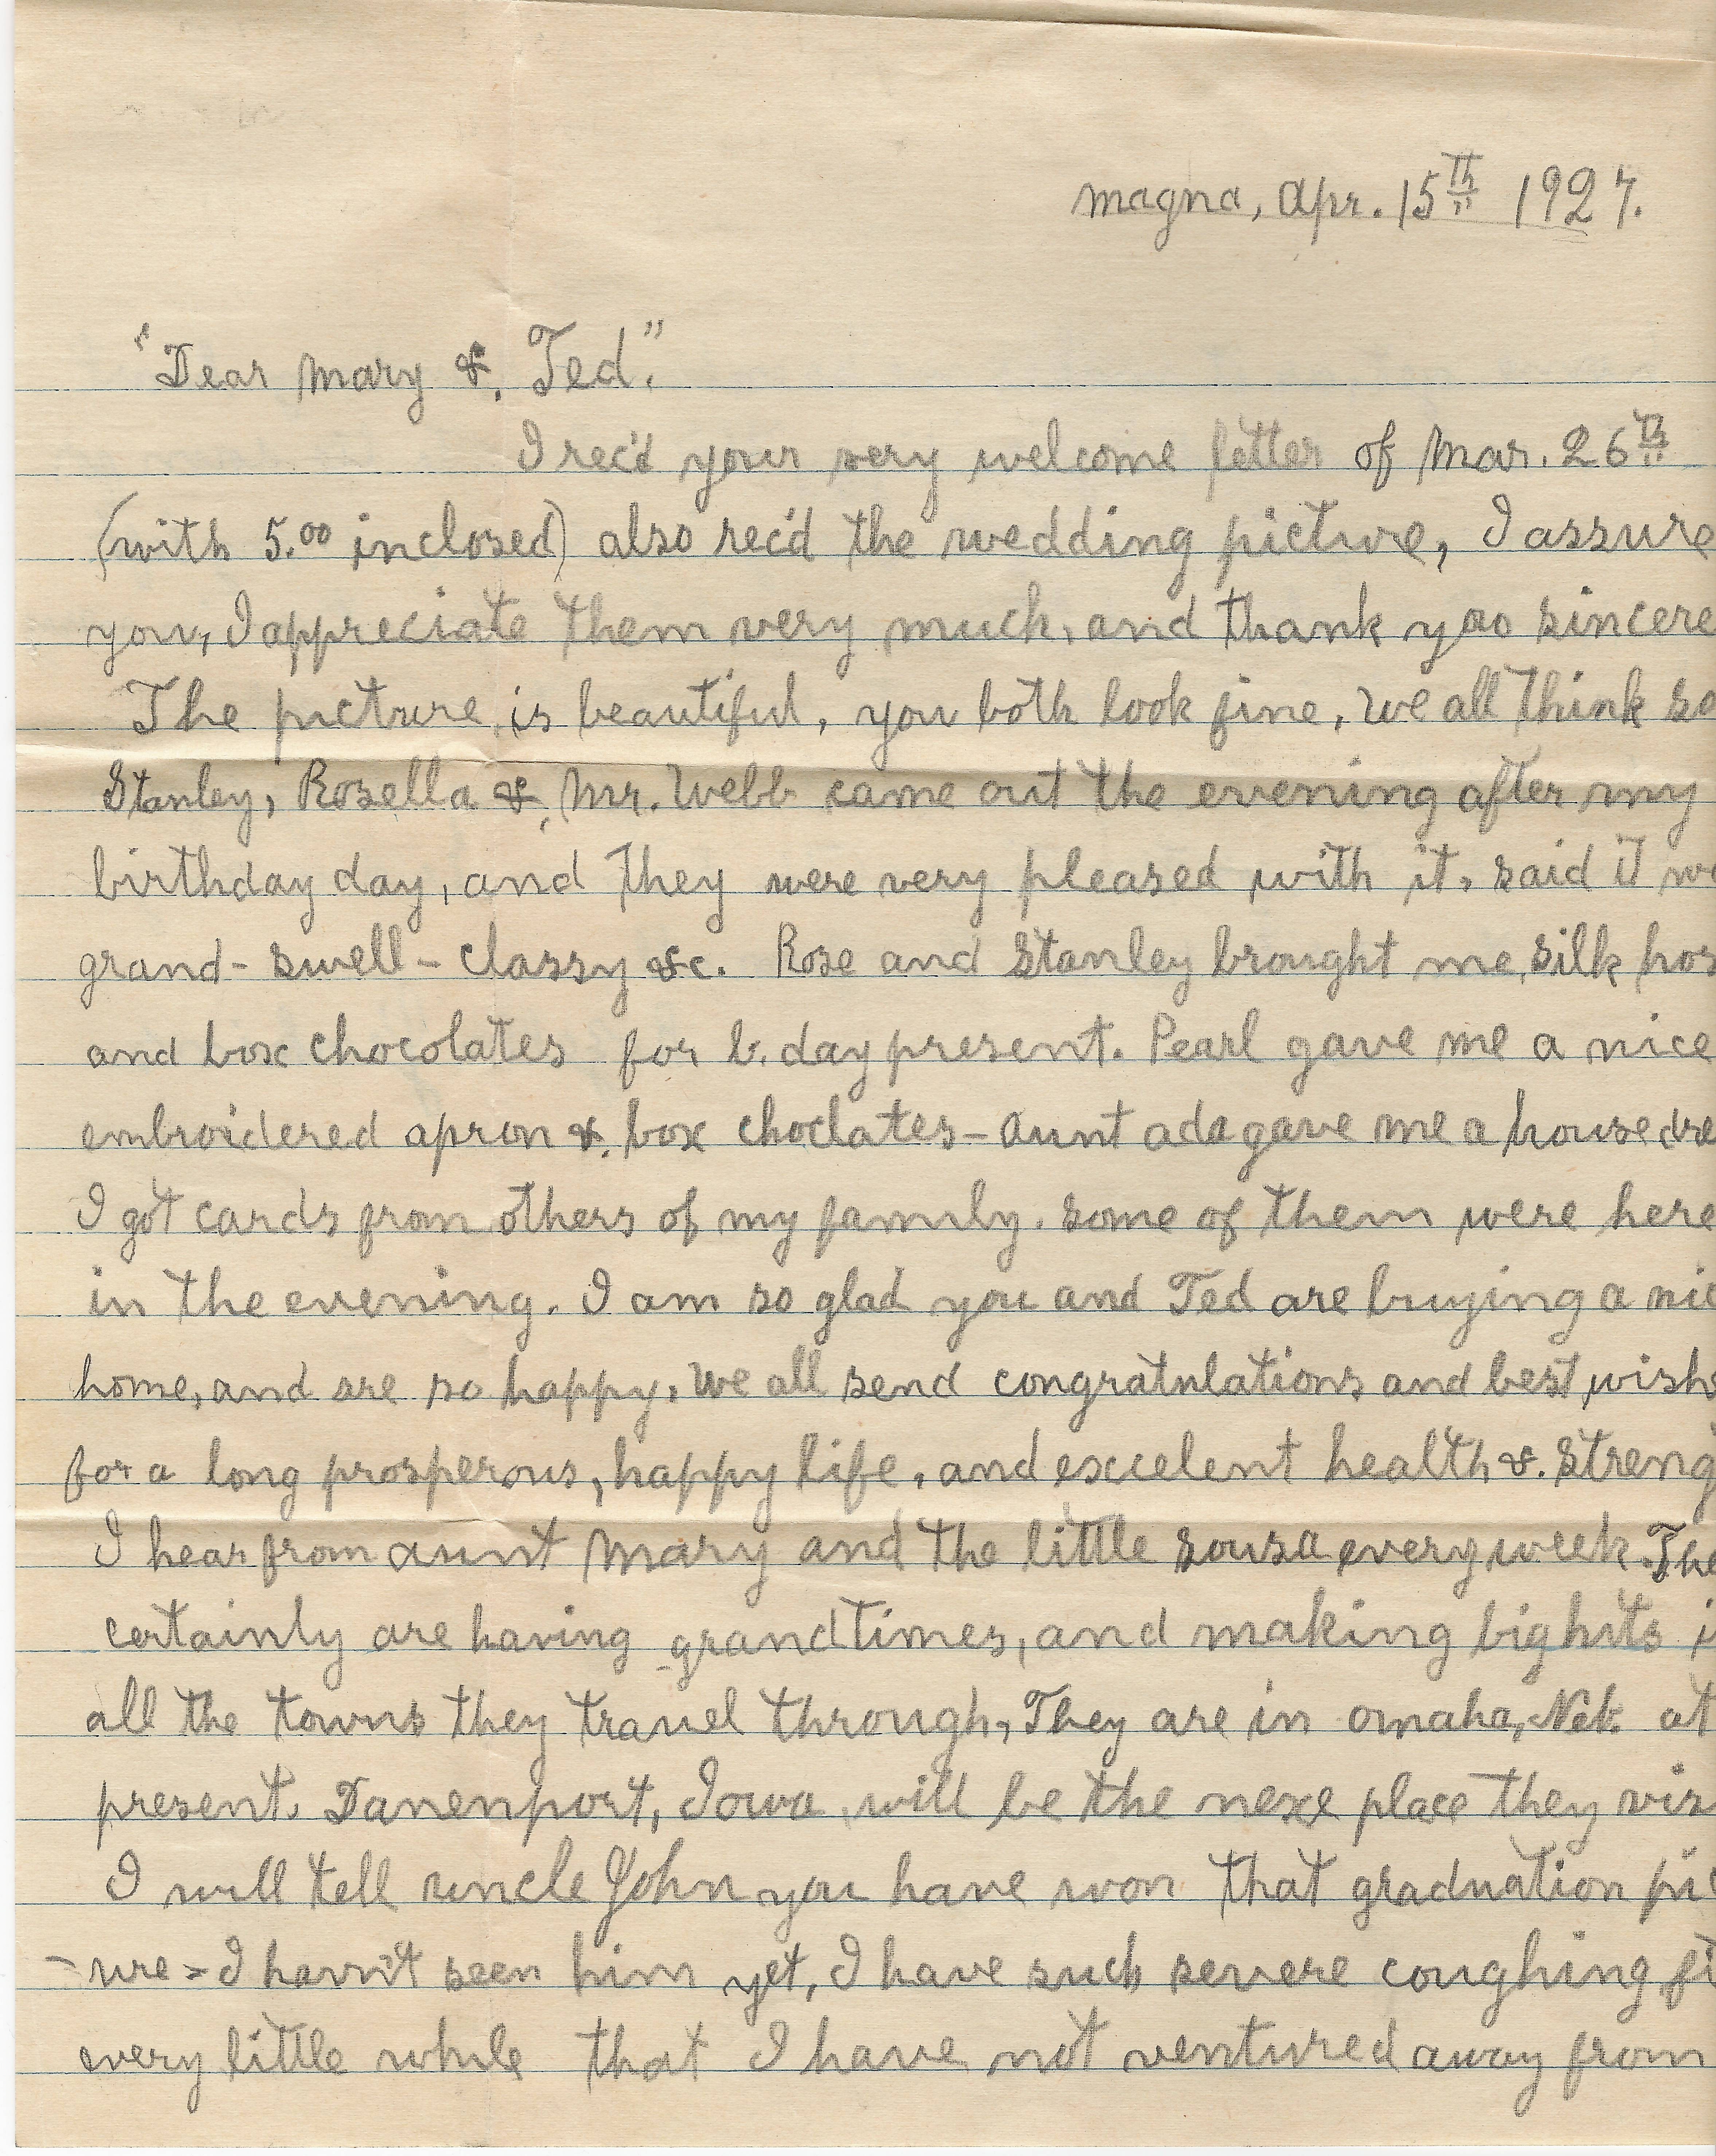 Magna, Apr. 15th 1927.
"Dear Mary &. Ted."
I rec'd your very welcome letter of Mar. 26th
(with 5.00 inclosed) also rec'd the wedding picture, I assure
you, I appreciate them very much, and thank yoo sincere
The picture is beautiful, you both look fine, we all think so
Stanley, Rosella &. Mr. Webb came out the evening after my
birthday day, and they were very pleased with it, said it
grand - swell - classy &c. Rose and Stanley brought me, silk hos
and box chocolates for b. day present. Pearl gave me a nice
embroidered apron &. box choclates - Aunt Ada gave me a house dre
I got cards from others of my family. some of them were here
in the evening. I am so glad you and Ted are buying a nic
home, and are so happy, we all send congratulations and best wish
for a long prosperous, happy life, and excelent health &. streng
I hear from Aunt Mary and the little sousa every week. The
certainly are having grand times, and making big hits i
all the towns they travel through, They are in Omaha, Neb. at
present. Davenport, Iowa, will be the nexe place they vis
I will tell uncle John you have won that graduation pic
- ure - I havn't seen him yet, I have such severe coughing fi
every little while that I have not ventured away from